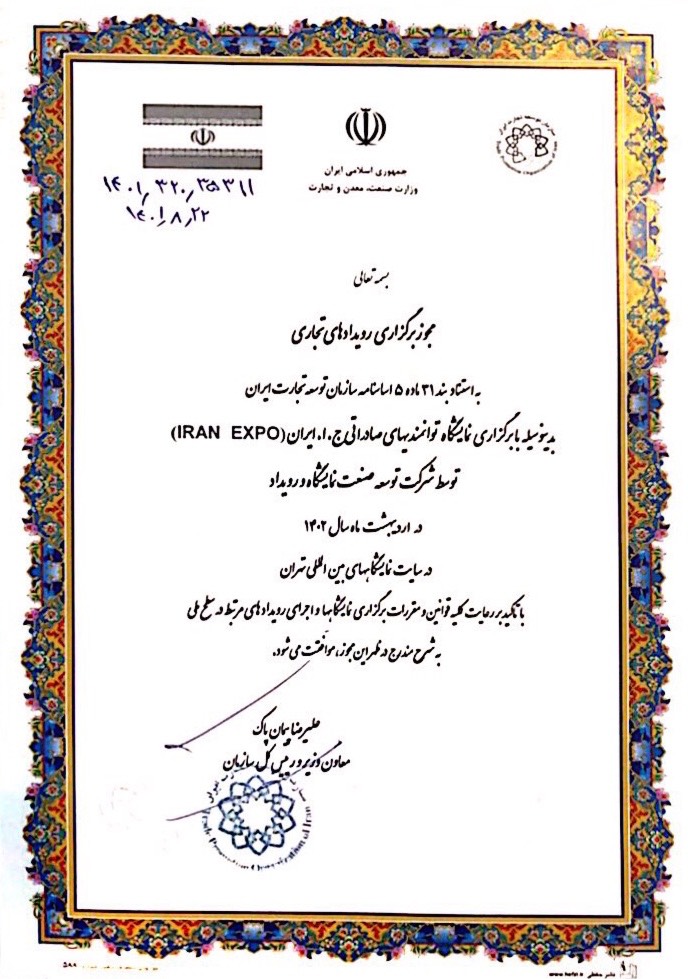 سازمان توسعه تجارت ایران
Trade Promotion Organization of Iran
جمهوری اسلامی ایران
وزارت صنعت، معدن و تجارت
۱۴۰۱٫۳۲۰٫۳۵۳۱۱
۱۴۰۱٫۸٫۲۲
بسمه تعالی
مجوز برگزاری رویدادهای تجاری
به استناد بند ۳۱ ماده ۵ اساسنامه سازمان توسعه تجارت ایران
بدینوسیله با برگزاری نمایشگاه توانمندیهای صادراتی ج.ا.ایران (IRAN EXPO)
توسط شرکت توسعه صنعت نمایشگاه و رویداد
در اردیبهشت ماه سال ۱۴۰۲
در سایت نمایشگاههای بین المللی تهران
با تاکید بر رعایت کلیه قوانین و مقررات برگزاری نمایشگاهها و اجرای رویدادهای مرتبط در سطح ملی
به شرح مندرج در ظهر این مجوز، موافقت می شود.
علیرضا پیمان پاک
معاون وزیر و رییس کل سازمان
Trade Promotion Organization of Iran